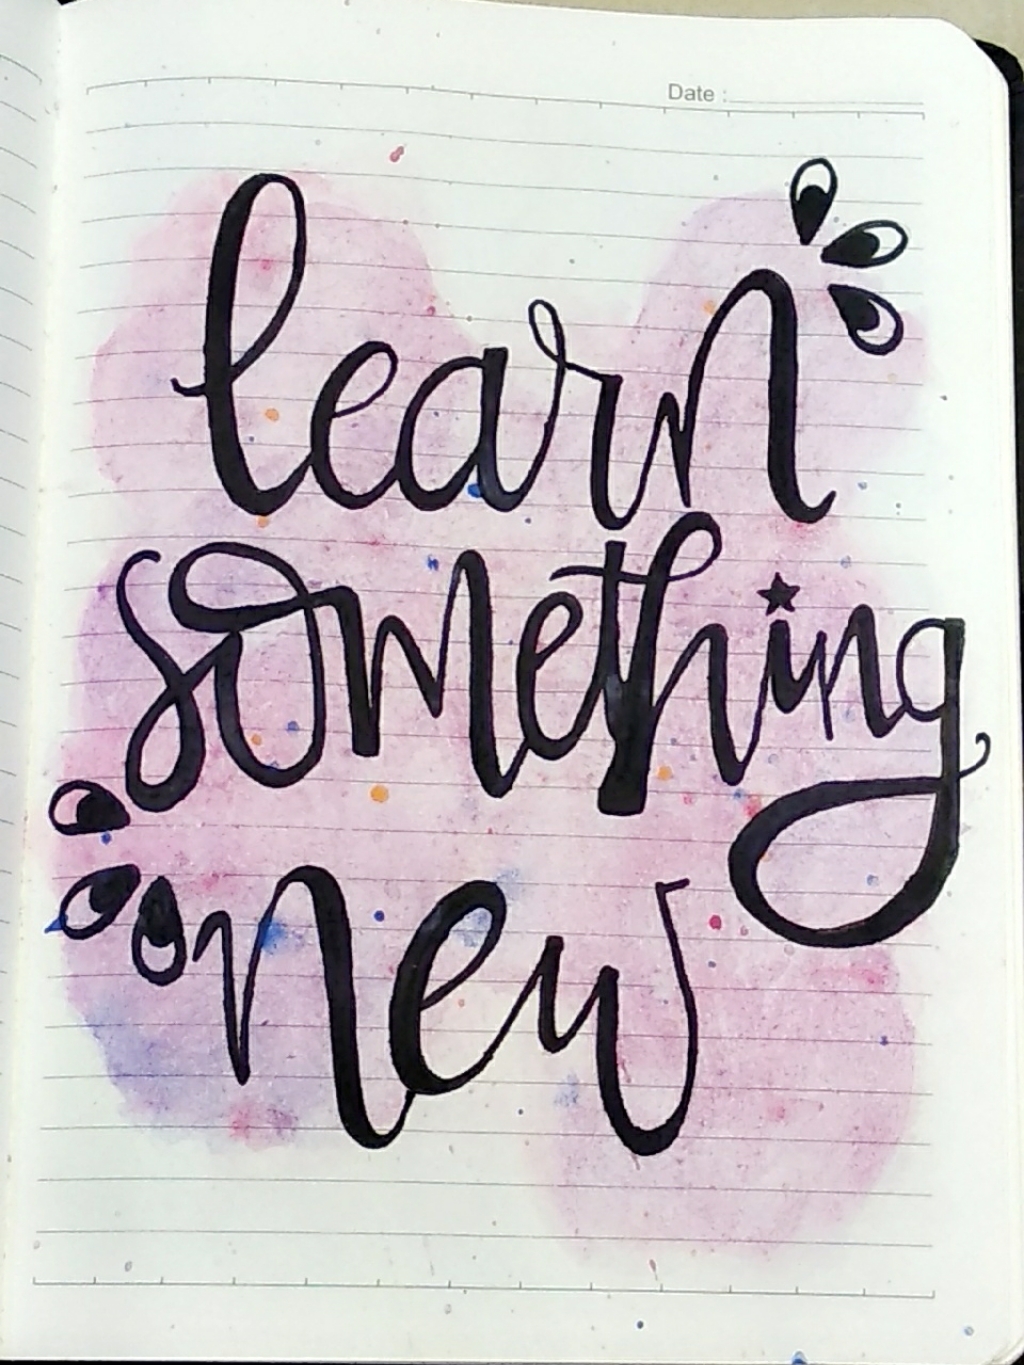 Date :
learn
something
new